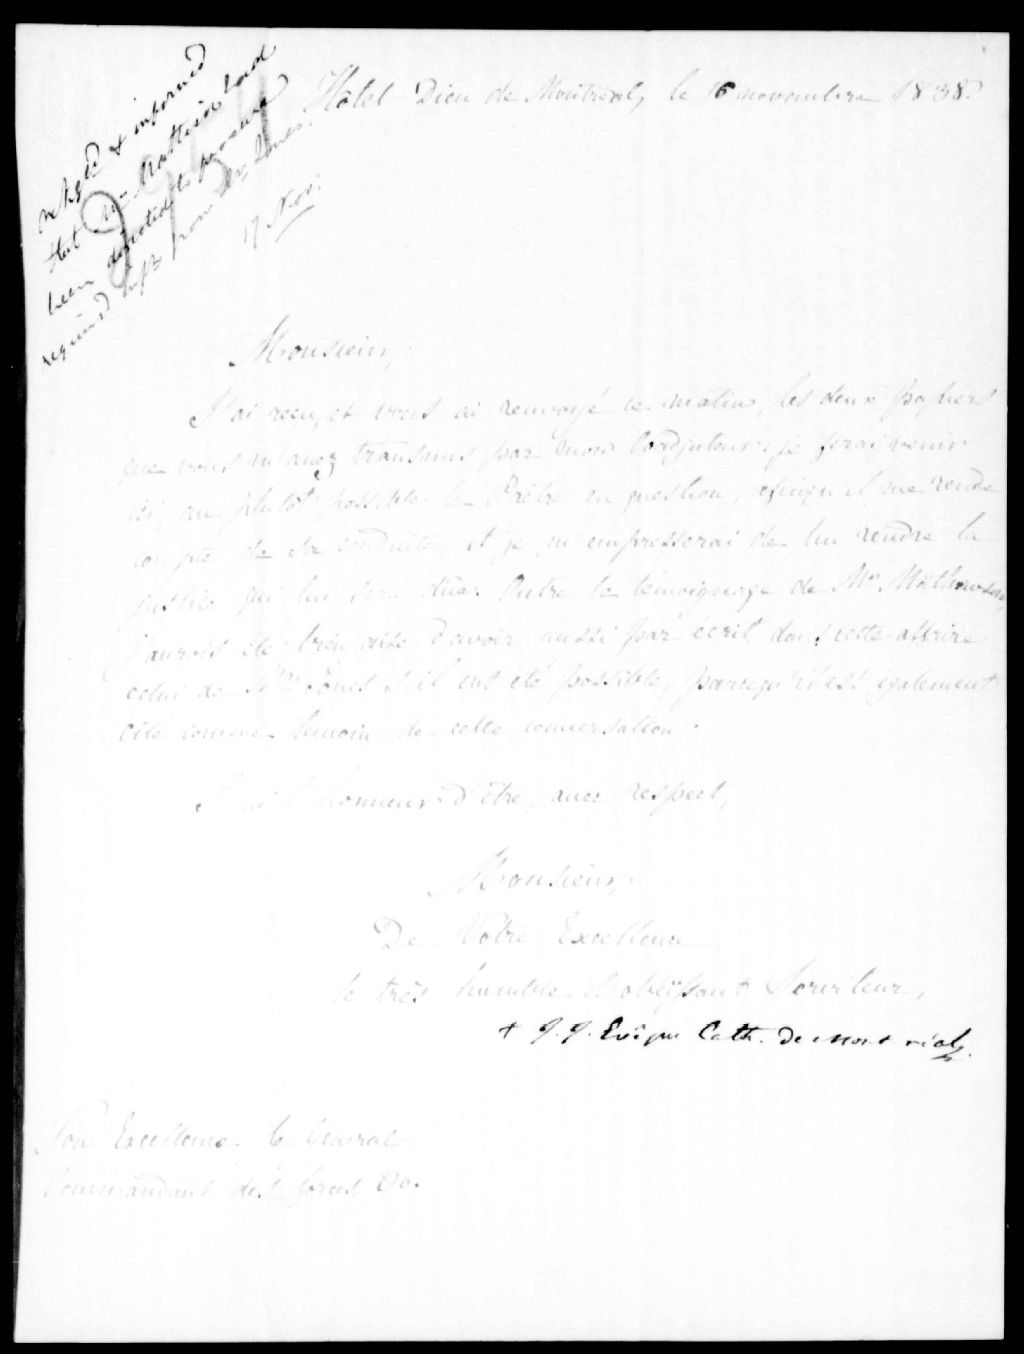 Hôtel-Dieu de Montréal, le 16 novembre 1838.
& informed
that Mr
been to procure
required from Mr Jones.
17 Nov:
Monsieur,
J'ai reçu, et vous ai renvoyé ce matin, les deux papiers
que vous m'avez transmis par mon Coadjuteur: je ferai venir
ici, au plutôt possible le Prêtre en question, afinqu'il me rende
compte de sa conduite, et je m'empresserai de lui rendre la
justice qui lui sera dûe. Outre le témoignage de Mr. Mathewson,
j'aurois été bien aise d'avoir aussi par écrit dans cette affaire
celui de Mr. Jones s'il eut été possible, parcequ'il est également
cité comme témoin de cette conversation.
J'ai l'honneur d'être, avec respect,
Monsieur,
De Votre Excellence
le très humble et obéissant Serviteur,
+ J. J. Evêque Cath. de Montréal.
Son Excellence le Général
Commandant des forces &c.